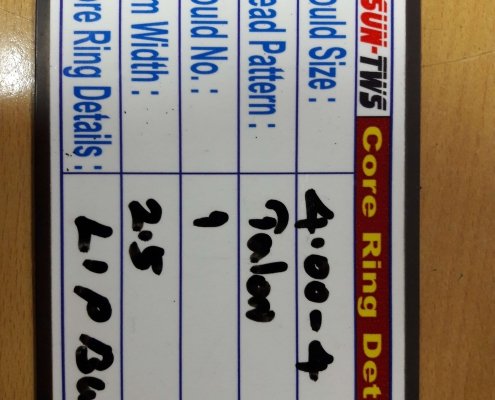 SUN-TWS Core Ring Det
ould Size : 4.00-4
ead Pattern : Talon
ould No. : 1
m Width : 2.5
ore Ring Details : L.P Bu